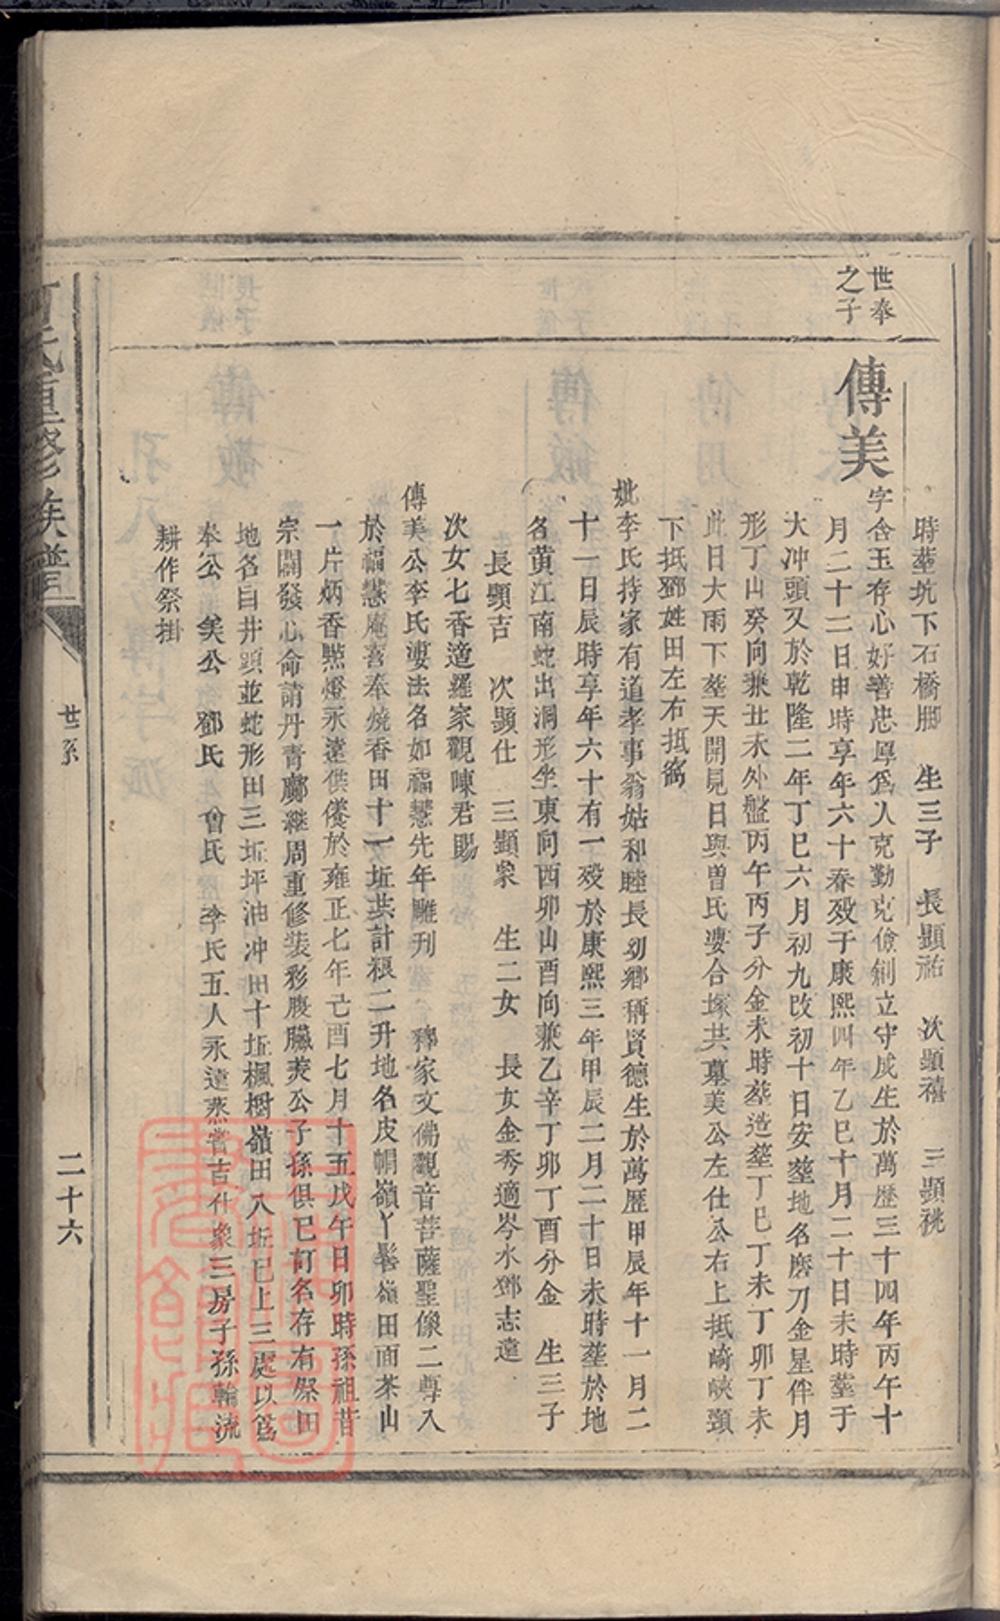 時塟坑下石橋脚　生三子　長顯祐　次顯禧　三顯祧
世奉
之子
傳美
字含玉存心好善忠厚爲人克勤克儉創立守成生於萬歷三十四年丙午十
月二十二日申時享年六十春歿于康熙四年乙巳十月二十日未時塟于
大冲頭又於乾隆二年丁巳六月初九改初十日安塟地名磨刀金星伴月
形丁山癸向兼丑未外盤丙午丙子分金未時塟造塟丁巳丁未丁卯丁未
此日大雨下塟天開見日與曽氏婆合塚共墓美公左仕公右上抵崎峽頸
下抵鄧姓田左右抵窩
妣李氏持家有道孝事翁姑和睦長幼鄉稱賢德生於萬歷甲辰年十一月二
十一日辰時享年六十有一歿於康熙三年甲辰二月二十日未時塟於地
名黄江南蛇出洞形坐東向西卯山酉向兼乙辛丁卯丁酉分金　生三子
長顯吉　次顯仕　三顯衆　生二女　長女金秀適岑水鄧志達
次女七香適羅家觀陳君賜
傳美公李氏婆法名如福慧先年雕刋　釋家文佛觀音菩薩聖像二尊入
於福慧庵喜奉燒香田十一坵共計粮二升地名皮帽嶺丫髻嶺田面茶山
一片炳香㸃燈永遠供養於雍正七年己酉七月十五戊午日卯時孫祖昔
宗開發心命請丹青鄺繼周重修装彩腹臟美公子孫俱已訂名存有祭田
地名白井頭並蛇形田三坵坪油冲田十坵楓樹嶺田八坵已上三處以爲
奉公　美公　鄧氏　會氏　李氏五人永遠烝嘗吉仕衆三房子孫輪流
耕作祭掛
氏重修族譜
世系
二十六